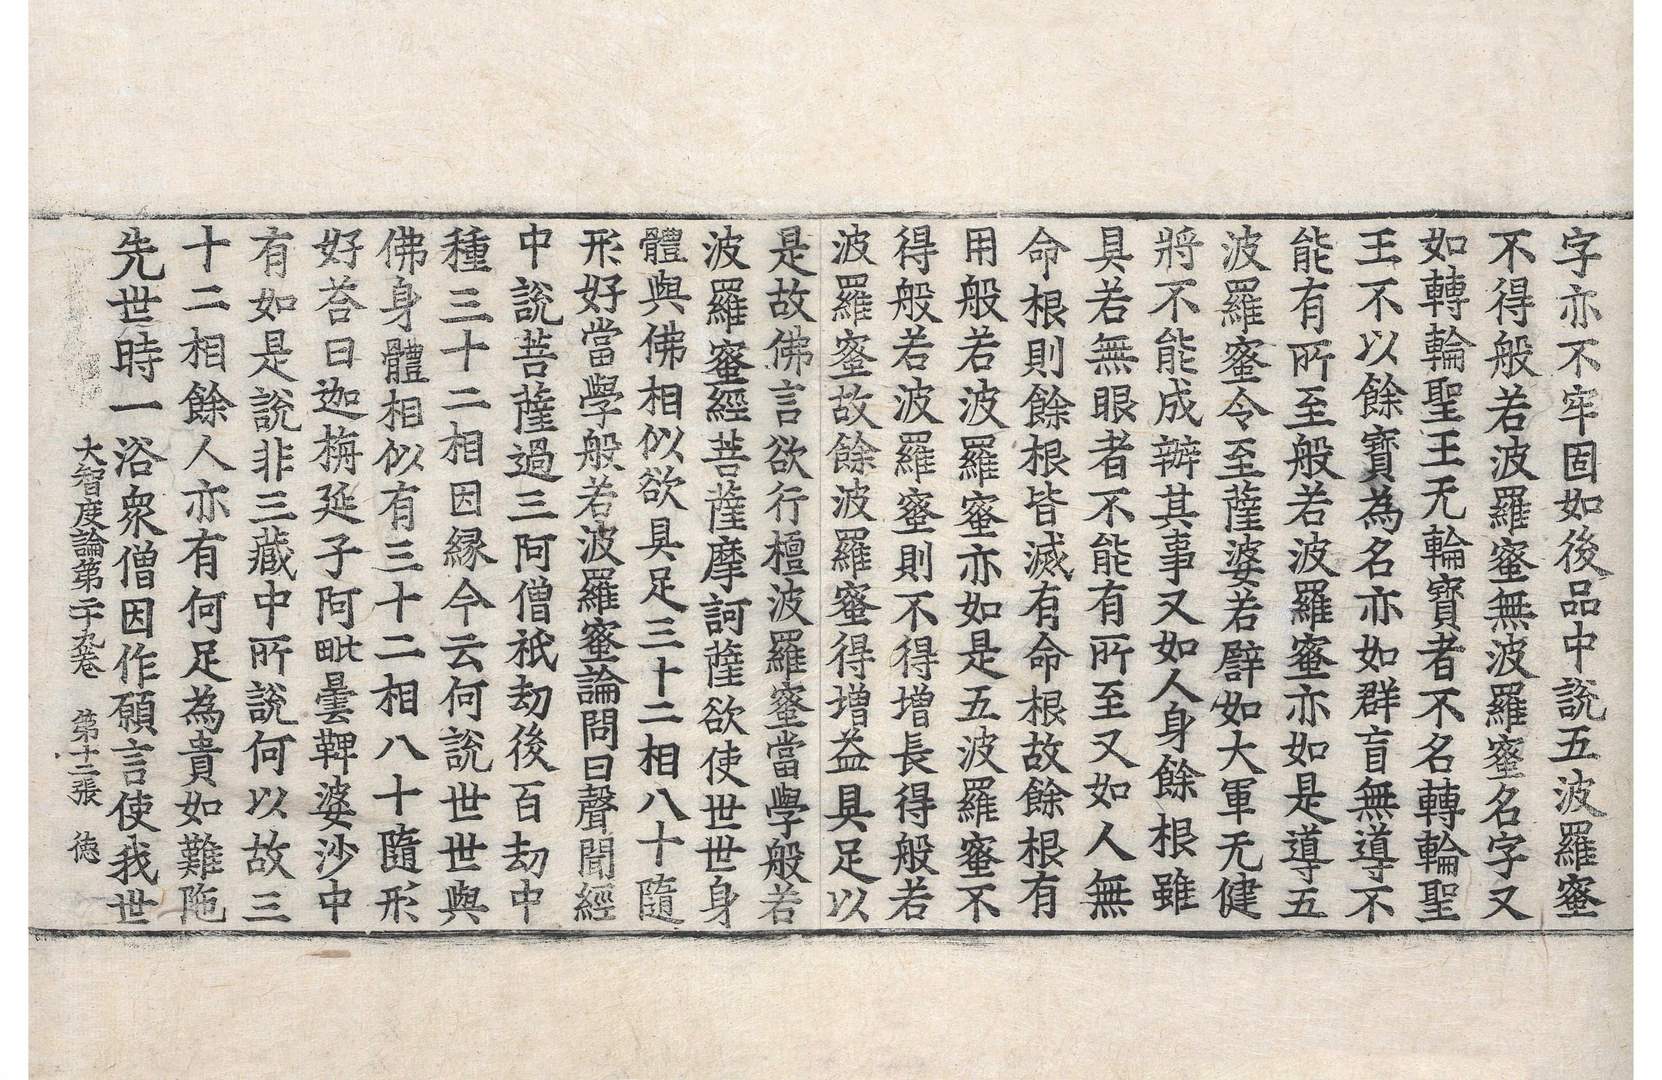 字亦不牢固如後品中說五波羅蜜
不得般若波羅蜜無波羅蜜名字又
如轉輪聖王无輪寶者不名轉輪聖
王不以餘寶為名亦如群盲無導不
能有所至般若波羅蜜亦如是導五
波羅蜜令至薩婆若譬如大軍无健
將不能成辦其事又如人身餘根雖
具若無眼者不能有所至又如人無
命根則餘根皆滅有命根故餘根有
用般若波羅蜜亦如是五波羅蜜不
得般若波羅蜜則不得增長得般若
波羅蜜故餘波羅蜜得增益具足以
是故佛言欲行檀波羅蜜當學般若
波羅蜜經菩薩摩訶薩欲使世世身
體與佛相似欲具足三十二相八十隨
形好當學般若波羅蜜論問曰聲聞經
中說菩薩過三阿僧祇劫後百劫中
種三十二相因緣今云何說世世與
佛身體相似有三十二相八十隨形
好荅曰迦栴延子阿毗曇鞞婆沙中
有如是說非三藏中所說何以故三
十二相餘人亦有何足為貴如難陁
先世時一浴衆僧因作願言使我世
大智度論第二十九卷 第十二張 德